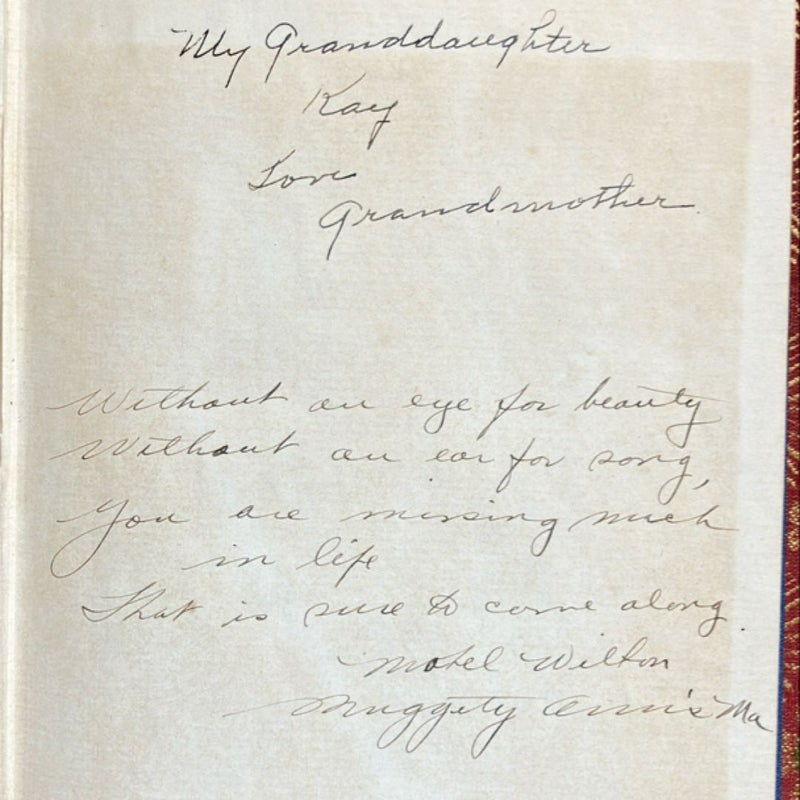 My Granddaughter
Kay
Love
Grandmother
Without an eye for beauty
Without an ear for song,
You are missing much
in life
That is sure to come along.
Wilton
Ma